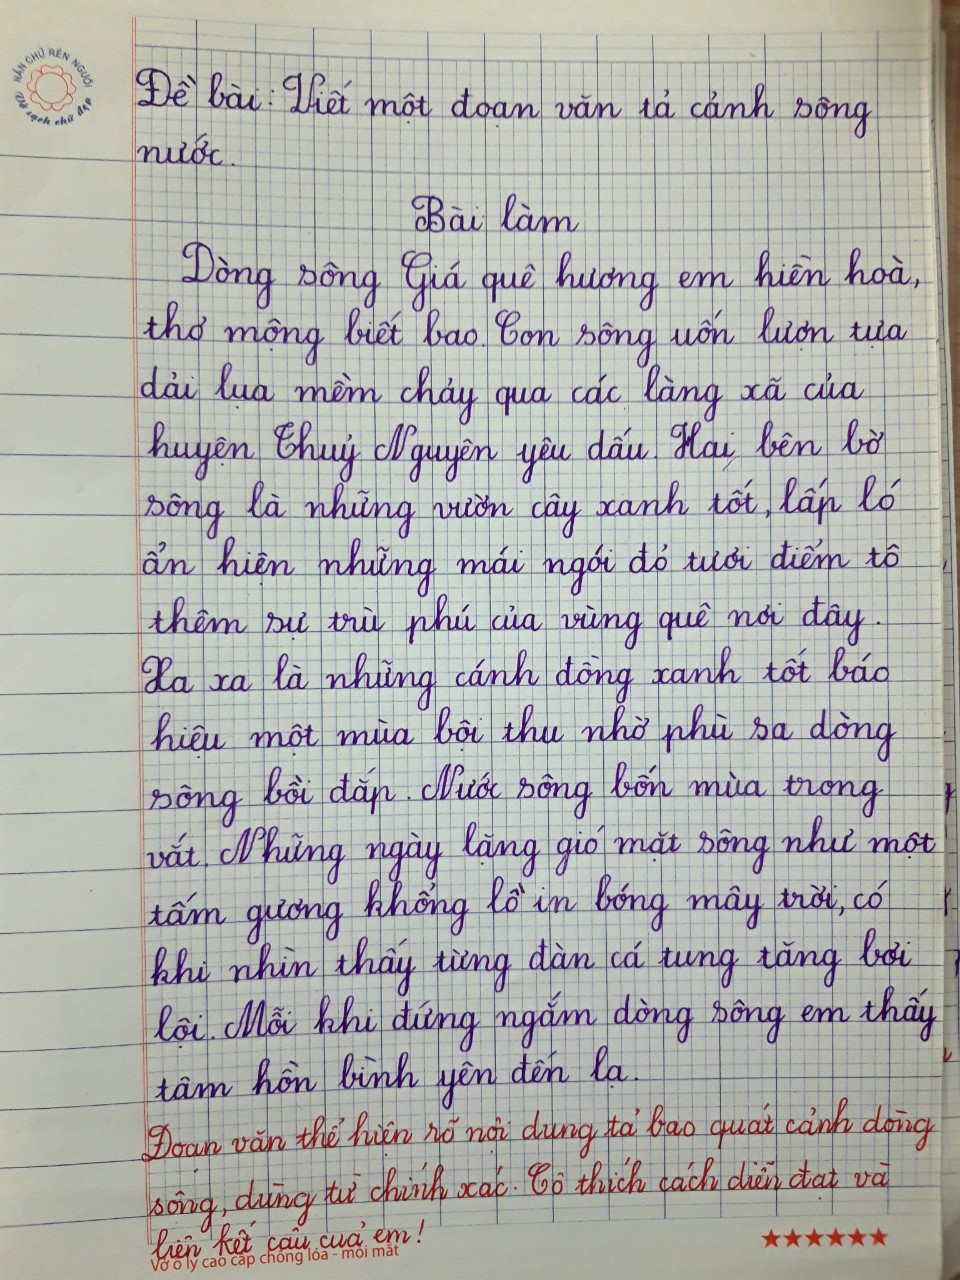 NẮN CHỮ RÈN NGƯỜI
Vở sạch chữ đẹp
Đề bài: Viết một đoạn văn tả cảnh sông
nước.
Bài làm
Dòng sông Giá quê hương em hiền hoà,
thơ mộng biết bao. Con sông uốn lượn tựa
dải lụa mềm chảy qua các làng xã của
huyện Thuỷ Nguyên yêu dấu. Hai bên bờ
sông là những vườn cây xanh tốt, lấp ló
ẩn hiện những mái ngói đỏ tươi điểm tô
thêm sự trù phú của vùng quê nơi đây.
Xa xa là những cánh đồng xanh tốt báo
hiệu một mùa bội thu nhờ phù sa dòng
sông bồi đắp. Nước sông bốn mùa trong
vắt. Những ngày lặng gió mặt sông như một
tấm gương khổng lồ in bóng mây trời, có
khi nhìn thấy từng đàn cá tung tăng bơi
lội. Mỗi khi đứng ngắm dòng sông em thấy
tâm hồn bình yên đến lạ.
Đoạn văn thể hiện rõ nội dung tả bao quát cảnh dòng
sông, dùng từ chính xác. Cô thích cách diễn đạt và
liên kết câu của em!
Vở ô ly cao cấp chống lóa - mỏi mắt